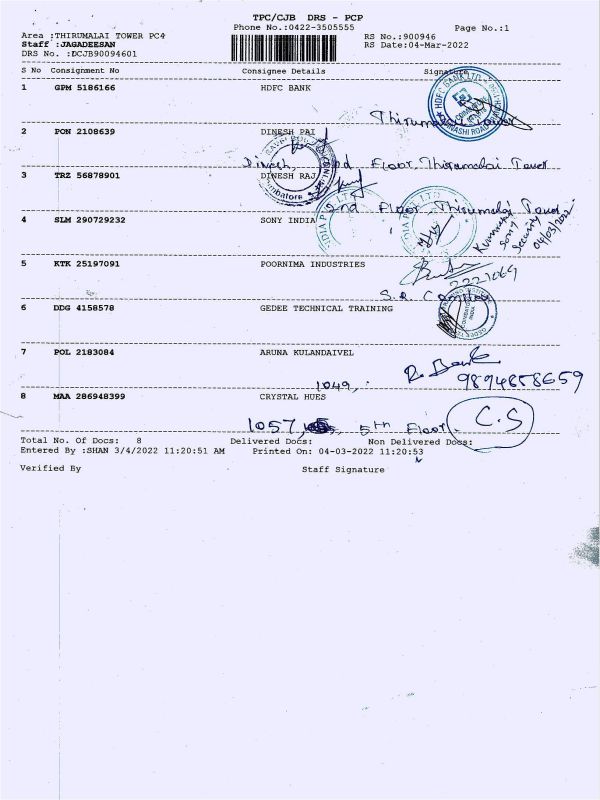 TPC/CJB DRS - PCP
Phone No.:0422-3505555
Page No.:1
Area :THIRUMALAI TOWER PC4
RS No.:900946
Staff :JAGADEESAN
RS Date:04-Mar-2022
DRS No. :DCJB90094601
S No Consignment No Consignee Details Signature
1 GPM 5186166 HDFC BANK
HDFC BANK LTD
Thirumalai Tower
2 PON 2108639 DINESH PAI
Dinesh, 2nd Floor, Thirumalai Tower
3 TRZ 56878901 DINESH RAJ
2nd Floor, Thirumalai Tower
4 SLM 290729232 SONY INDIA
Sony
Security
04/03/2022
5 KTK 25197091 POORNIMA INDUSTRIES
2221069
6 DDG 4158578 GEDEE TECHNICAL TRAINING
7 POL 2183084 ARUNA KULANDAIVEL
9894858659
1049,
8 MAA 286948399 CRYSTAL HUES
1057, 5th Floor. C.S
Total No. Of Docs: 8 Delivered Docs: Non Delivered Docs:
Entered By :SHAN 3/4/2022 11:20:51 AM Printed On: 04-03-2022 11:20:53
Verified By Staff Signature